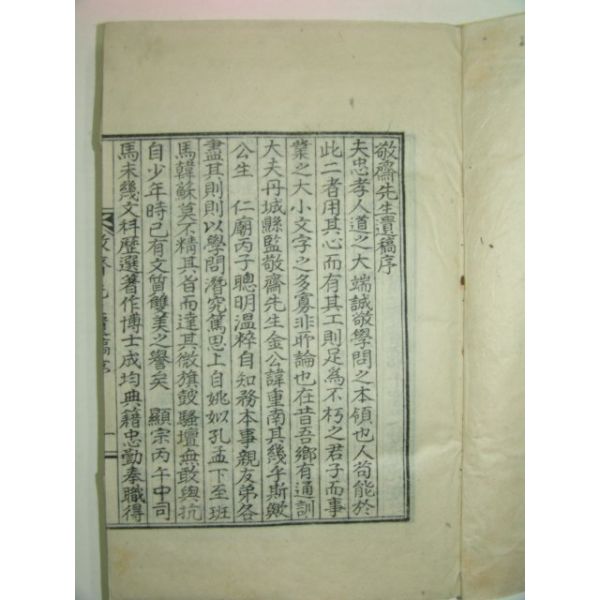 敬齋先生遺稿序
夫忠孝人道之大端誠敬學問之本領也人苟能於
此二者用其心而有其工則足為不朽之君子而事
業之大小文字之多寡非所論也在昔吾鄉有通訓
大夫丹城縣監敬齋先生金公諱重南其幾乎斯歟
公生 仁廟丙子聰明溫粹自知務本事親友弟各
盡其則則以學問潛究篤思上自姚姒孔孟下至班
馬韓蘇莫不精其旨而達其微旗鼓騷壇無敢與抗
自少年時已有文質雙美之譽矣 顯宗丙午中司
馬未幾文科歷選著作博士成均典籍忠勤奉職得
敬齋先 遺稿序
一